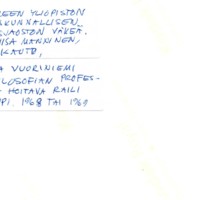 REEN YLIOPISTON
KUNNALLISEN
JAOSTON VÄKEÄ.
ISA MANNINEN,
KAUTO,
A VUORINIEMI
LOSOFIAN PROFES-
HOITAVA RAILI
PI. 1968 TAI 1969